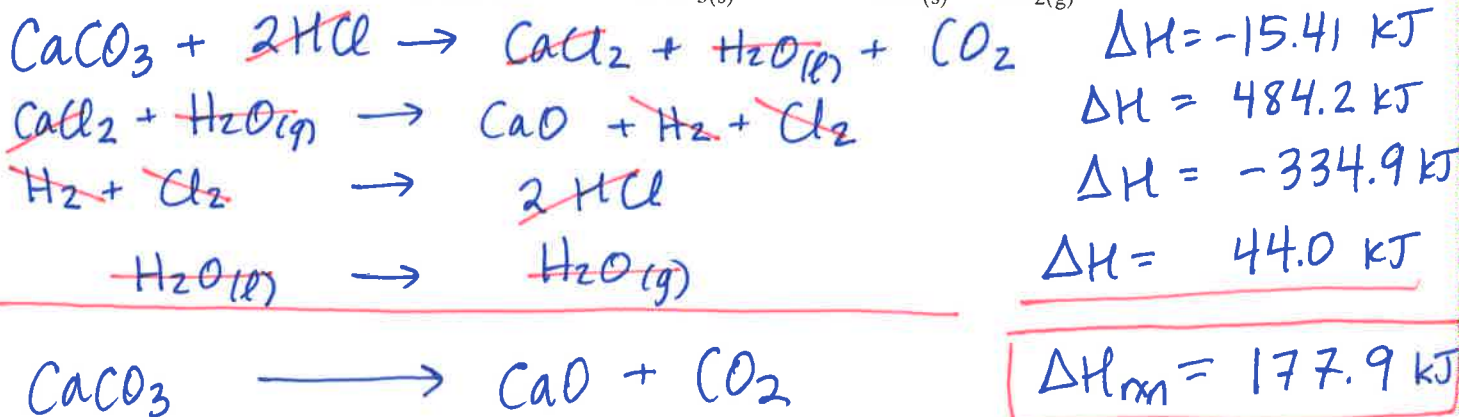 3(s) (s) 2(g)
CaCO₃ + 2HCl → CaCl₂ + H₂O(l) + CO₂ ΔH = -15.41 kJ
CaCl₂ + H₂O(g) → CaO + H₂ + Cl₂ ΔH = 484.2 kJ
H₂ + Cl₂ → 2 HCl ΔH = -334.9 kJ
H₂O(l) → H₂O(g) ΔH = 44.0 kJ
CaCO₃ → CaO + CO₂ ΔHrxn = 177.9 kJ